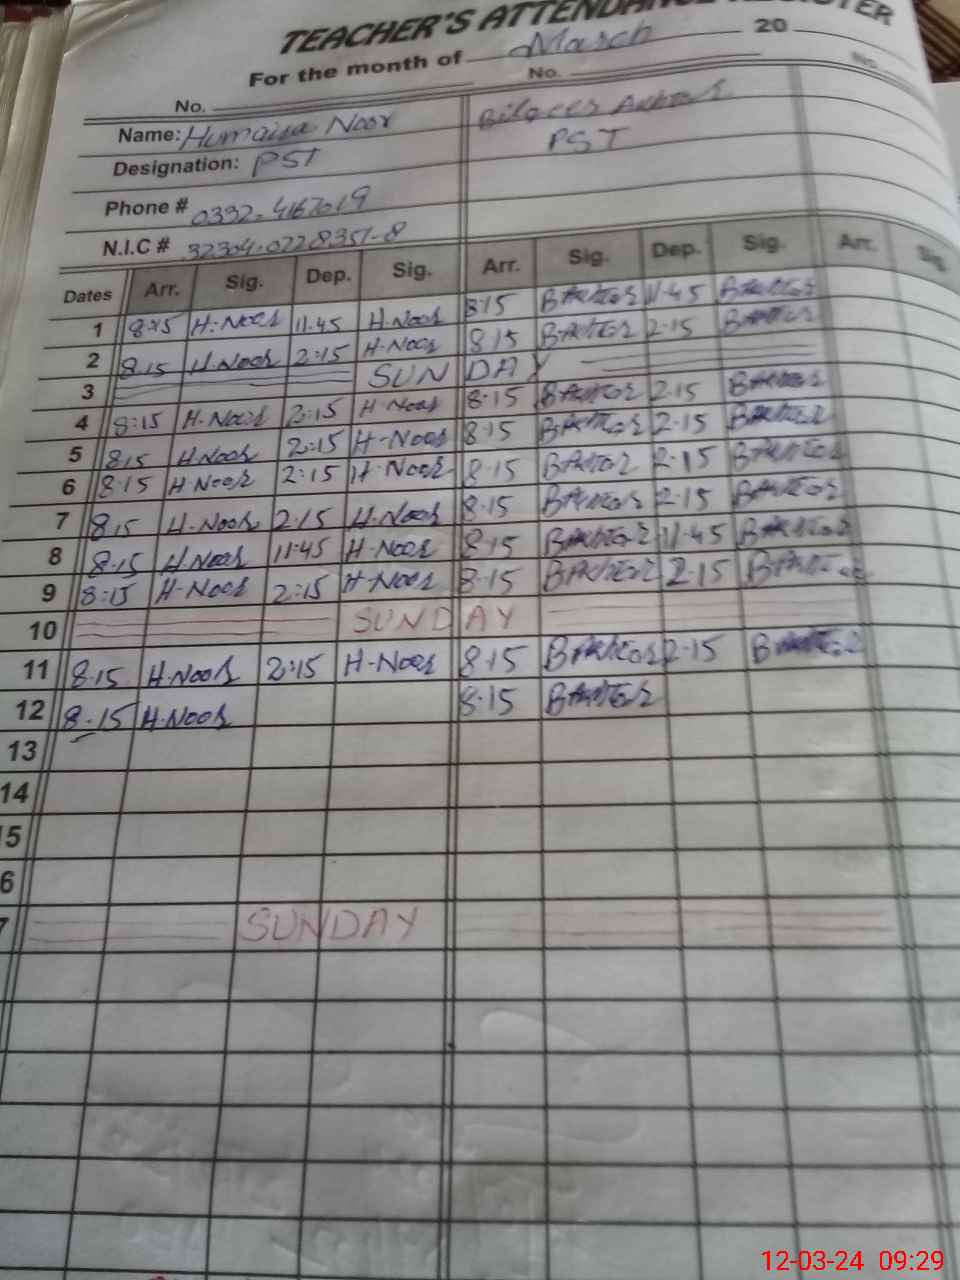 TEACHER'S ATTENDANCE REGISTER
For the month of March 20
No. No. No.
Name: Humaira Noor
Designation: PST PST
Phone # 0332-4167019
N.I.C # 32304-0228351-8
Dates Arr. Sig. Dep. Sig. Arr. Sig. Dep. Sig. Arr. Sig
1 8:15 H-Noor 11-45 H-Noor 8:15 BAKHTOR 11-45 BAKHTOR
2 8.15 H-Noor 2:15 H-Noor 8.15 BAKHTOR 2-15 BAKHTOR
3 SUNDAY
4 8:15 H-Noor 2:15 H-Noor 8-15 BAKHTOR 2.15 BAKHTOR
5 8.15 H-Noor 2:15 H-Noor 8.15 BAKHTOR 2-15 BAKHTOR
6 8-15 H-Noor 2:15 H-Noor 8-15 BAKHTOR 2-15 BAKHTOR
7 8.15 H-Noor 2.15 H-Noor 8-15 BAKHTOR 2-15 BAKHTOR
8 8.15 H-Noor 11-45 H-Noor 8-15 BAKHTOR 11-45 BAKHTOR
9 8:15 H-Noor 2:15 H-Noor 8-15 BAKHTOR 2-15 BAKHTOR
10 SUNDAY
11 8.15 H-Noor 2:15 H-Noor 8.15 BAKHTOR 2-15 BAKHTOR
12 8-15 H-Noor 8-15 BAKHTOR
13
14
5
6
7 SUNDAY
12-03-24 09:29